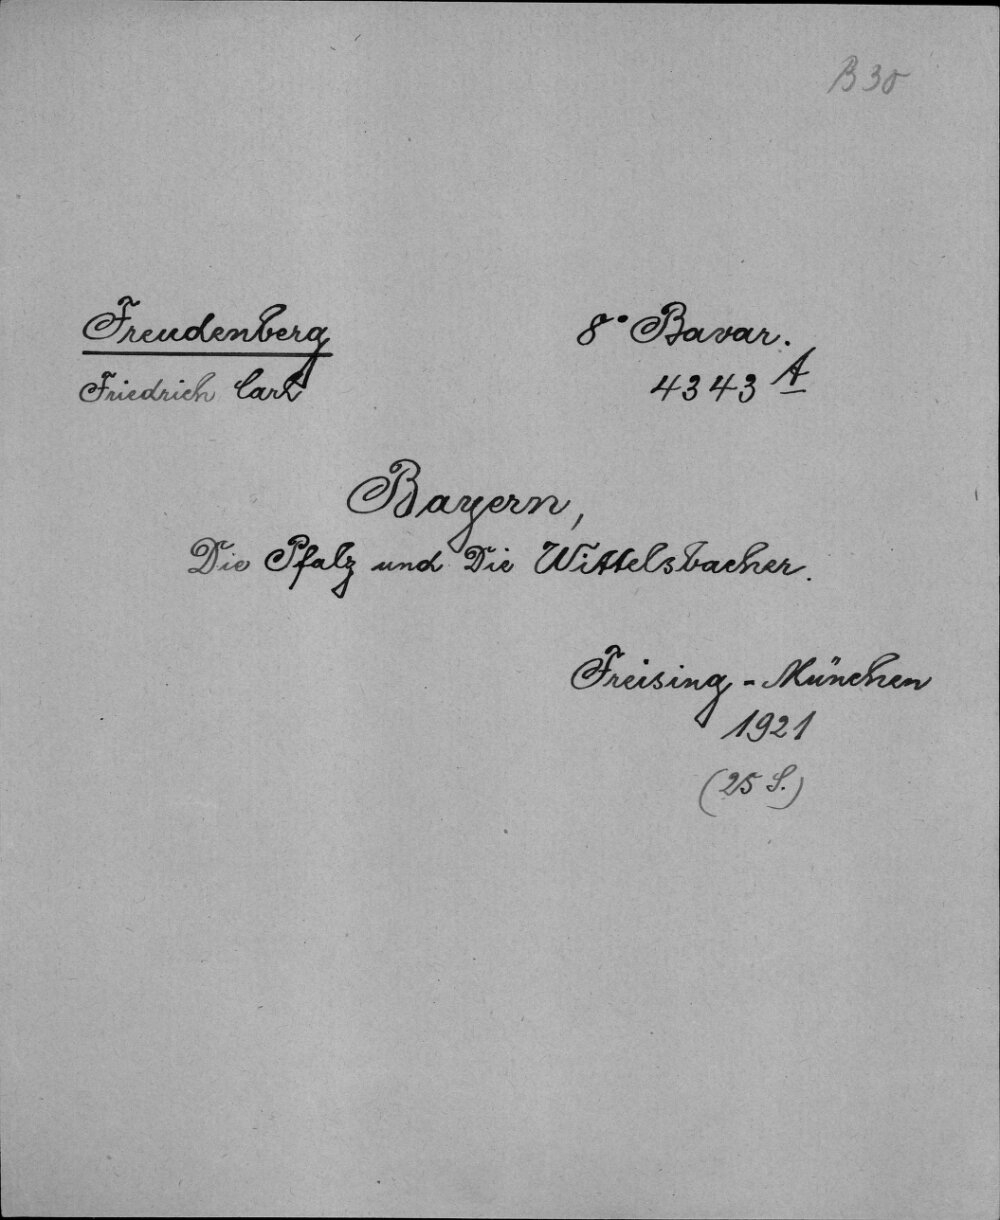 B 30
Freudenberg
Friedrich Carl
8° Bavar.
4343 A
Bayern,
Die Pfalz und Die Wittelsbacher.
Freising - München
1921
(25 S.)